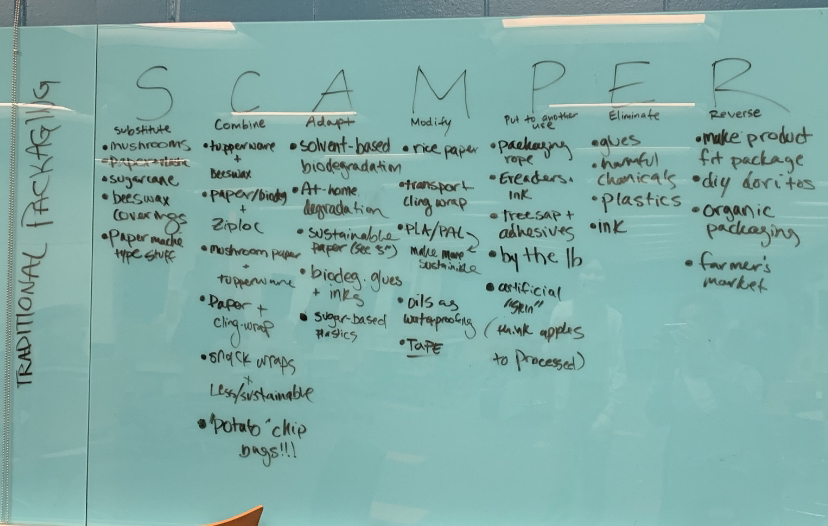 TRADITIONAL PACKAGING
S C A M P E R
Substitute
• mushrooms
• sugarcane
• beeswax
coverings
• Paper mache
type stuff
Combine
• tupperware
+
Beeswax
• paper/biodg
+
Ziploc
• mushroom paper
+
tupperware
• Paper +
cling-wrap
• snack wraps
+
Less/sustainable
• "Potato" chip
bags!!!
Adapt
• solvent-based
biodegradation
• At-home
degradation
• sustainable
paper (see "S")
• biodeg. glues
+ inks
• sugar-based
plastics
Modify
• rice paper
• transport
cling wrap
• PLA/PAL
make more
sustainable
• oils as
waterproofing
• TAPE
Put to another
use
• packaging
rope
ink
• tree sap +
adhesives
• by the lb
• artificial
"skin"
(think apples
to processed)
Eliminate
• glues
• harmful
chemicals
• plastics
• ink
Reverse
• make product
fit package
• diy doritos
• organic
packaging
• farmer's
market